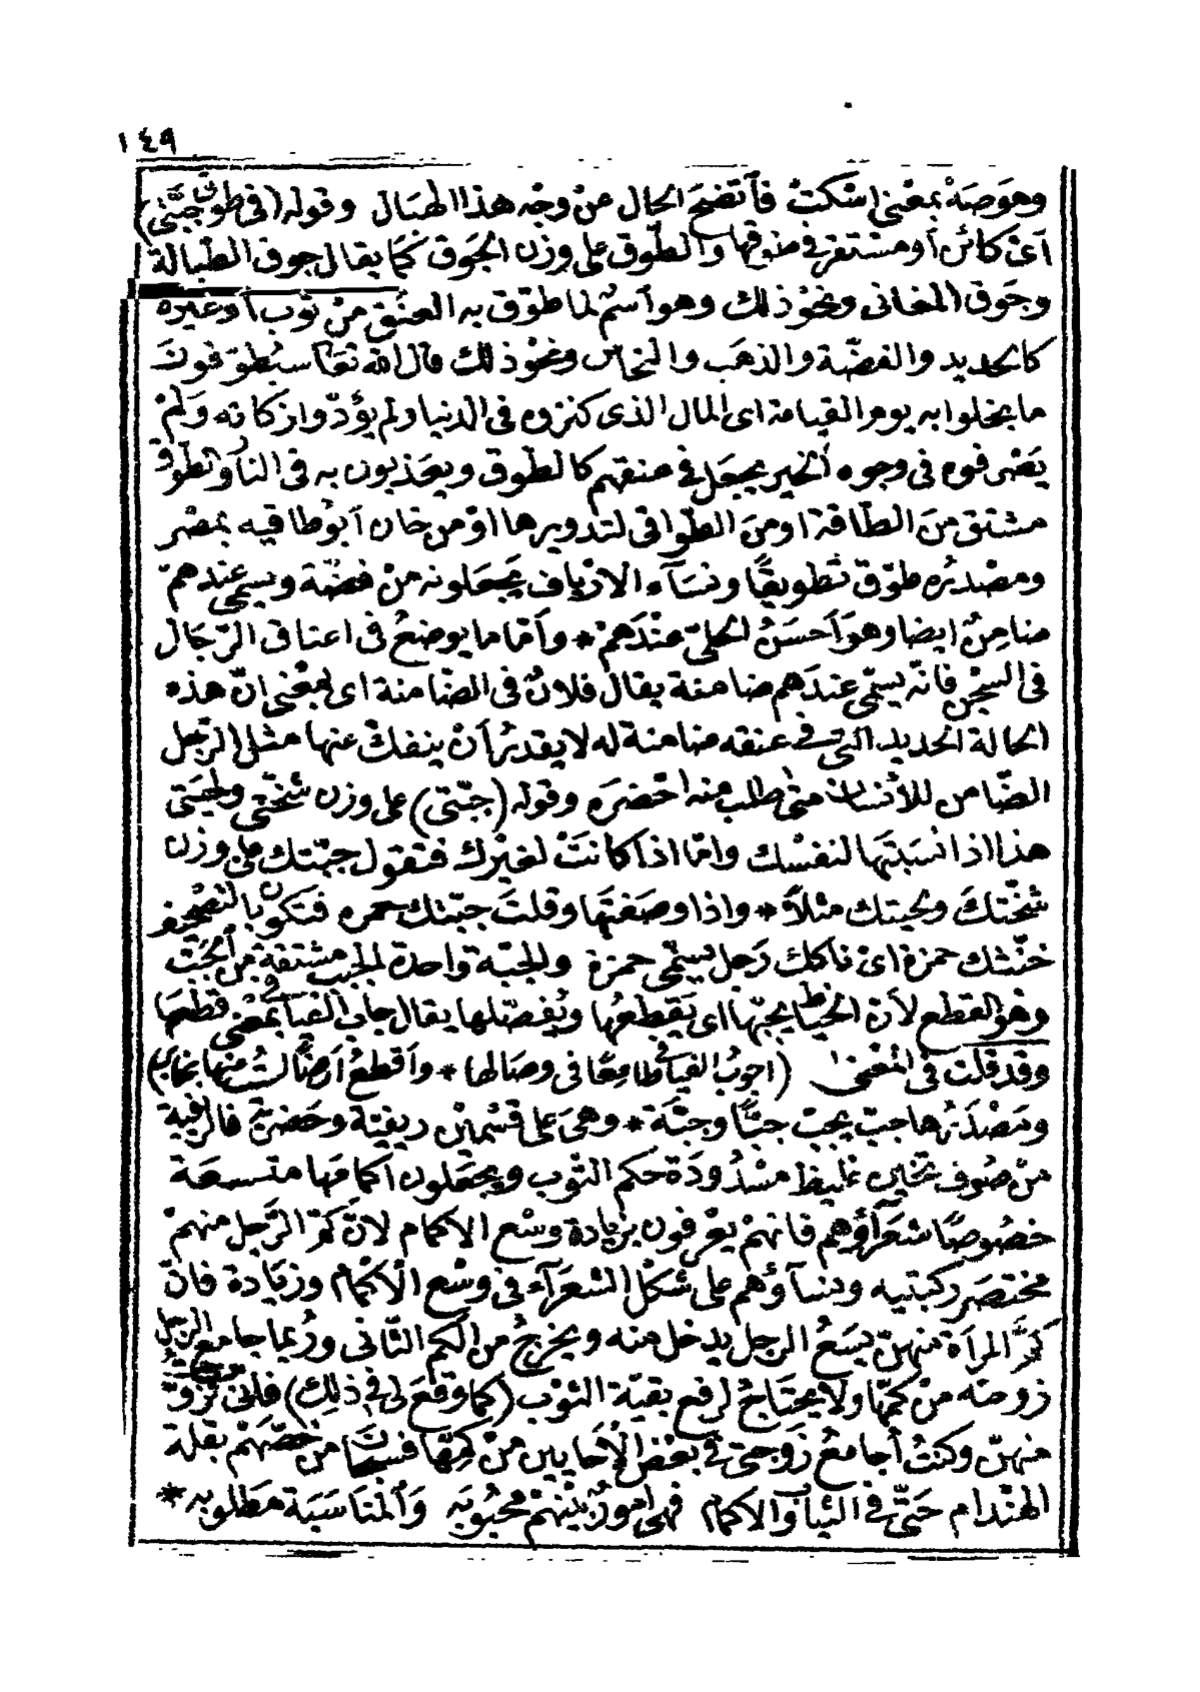 ١٤٩
وهوصَهْ بمعْنى اسْكتْ فاَتضحَ الحال منْ وجْه هذا الهبَال وقوله (فى طوق جبّتى)
أىْ كائن أو مستقر فى طوقها والطّوق على وزن الجَوق كمَا يقال جوق الطّبالة
وجَوق المغانى ونحوْ ذلك وهو أسْم لما طوّق به العنُق منْ ثوب أوغيره
كالحديد والفضّة والذهَب والنحاس ونحوْ ذلك قال الله تعَا سيُطوّقونَ
ما بخلوا به يوم القيامة اى المال الذى كنزوه فى الدنيا ولم يؤدّوا زكاته ولمْ
يَصْرفوه فى وجوه الخير يجعَل فى عنقهم كالطّوق ويعَذبون به فى النار والطّوق
مشتق منَ الطّاقة اومنَ الطّواقى لتدويرها اوْ من خان أبوُ طاقيه بمصْر
ومصْدرُه طوّق تطويقًا ونسَآء الارْياف يجعَلونه منْ فضّة ويسمى عندهمْ
ضامِنٌ ايضا وهوَ أحسَنُ الحلىّ عنْدَهمْ * وأمّا ما يوضعُ فى اعناق الرّجَال
فى السجْن فانّه يسَمّى عندَهم ضامنة يقال فلانٌ فى الضّامنة اى بمعْنى انّ هذه
الحالة الحديد التى فى عنقه ضامنة له لا يقدرُ أنْ ينفكّ عنها مثل الرّجل
الضّامن للأنسان متى طلب منه احْضرَه وقوله (جبّتى) على وزن شخّتى ولحيَتى
هذا اذا نسَبتَها لنفسْك وامّا اذا كانتْ لغيْرك فتقول جبّتك على وزن
شخّتكَ ولحيتك مثلاً * واذا وصَفتَها وقلتَ جبّتك حمره فتكون بالتصْحيف
خنّثك حمزة اىْ ناكك رَجل يسَمّى حمزة والجبّة واحدة الجبب مشتقة من الجبّ
وهُو القطع لأن الخيّاط يجبّها اى يَقطعُها ويُفصّلها يقال جاب الفيَافى بمعْنى قطعَها
وقد قلت فى المعْنى (اجوبُ الفيافى طامعًا فى وصَالها * وأقطعُ أرضًا لستُ منها بخايب)
ومَصْدَرُها جبّ يجبّ جبًّا وجبّة * وهىَ على قسْميْن ريفيّة وحَضريّة فالريفية
منْ صُوف ثخين غليظ مسْدُودَة حَكم الثّوب ويجعَلون أكمامَها متسعَة
خصُوصًا شعَرآؤهم فانهمْ يعْرفون بزيادة وسْع الاكمام لانّ كمّ الرّجل منهمْ
مختصَر ركبتيه ونسآؤهم على شكْل الشعَرآء فى وسْع الْاكمْام وزيَادة فانّ
كمّ المرأة منهنّ يسَعُ الرجل يدخل منه ويخرجُ من الكم الثّانى ورُبما جامع الرجل
زوجته منْ كمّها ولا يحتَاجُ لرفع بقيّة الثوْب (كما وقعَ لى فى ذلِك) فانى تزوّجتُ
منهنّ وكنتُ أجامعُ زَوجتى فى بعْض الْاحَايين منْ كمّها فسبحان من خصّهمْ بقلة
الهنْدام حَتّى فى الثيَاب والاكمام فهى امورٌ بيْنهمْ محبُوبَه وَالمْنَاسَبَة مَطلوبه *